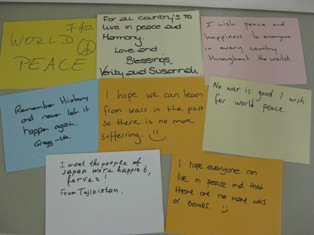 WORLD
PEACE
For all country's to
live in peace and
Harmony.
Love and
Blessings,
Verity and Susannah
I wish peace and
happiness to everyone
in every country
throughout the world
Remember History
and never let it
happen again.
I hope we can learn
from wars in the past
so there is no more
suffering.
No war is good I wish
for world peace.
I want the people of
Japan were happiest,
forever!
From Tajikistan.
I hope everyone can
live in peace and that
there are no more wars
or bombs.